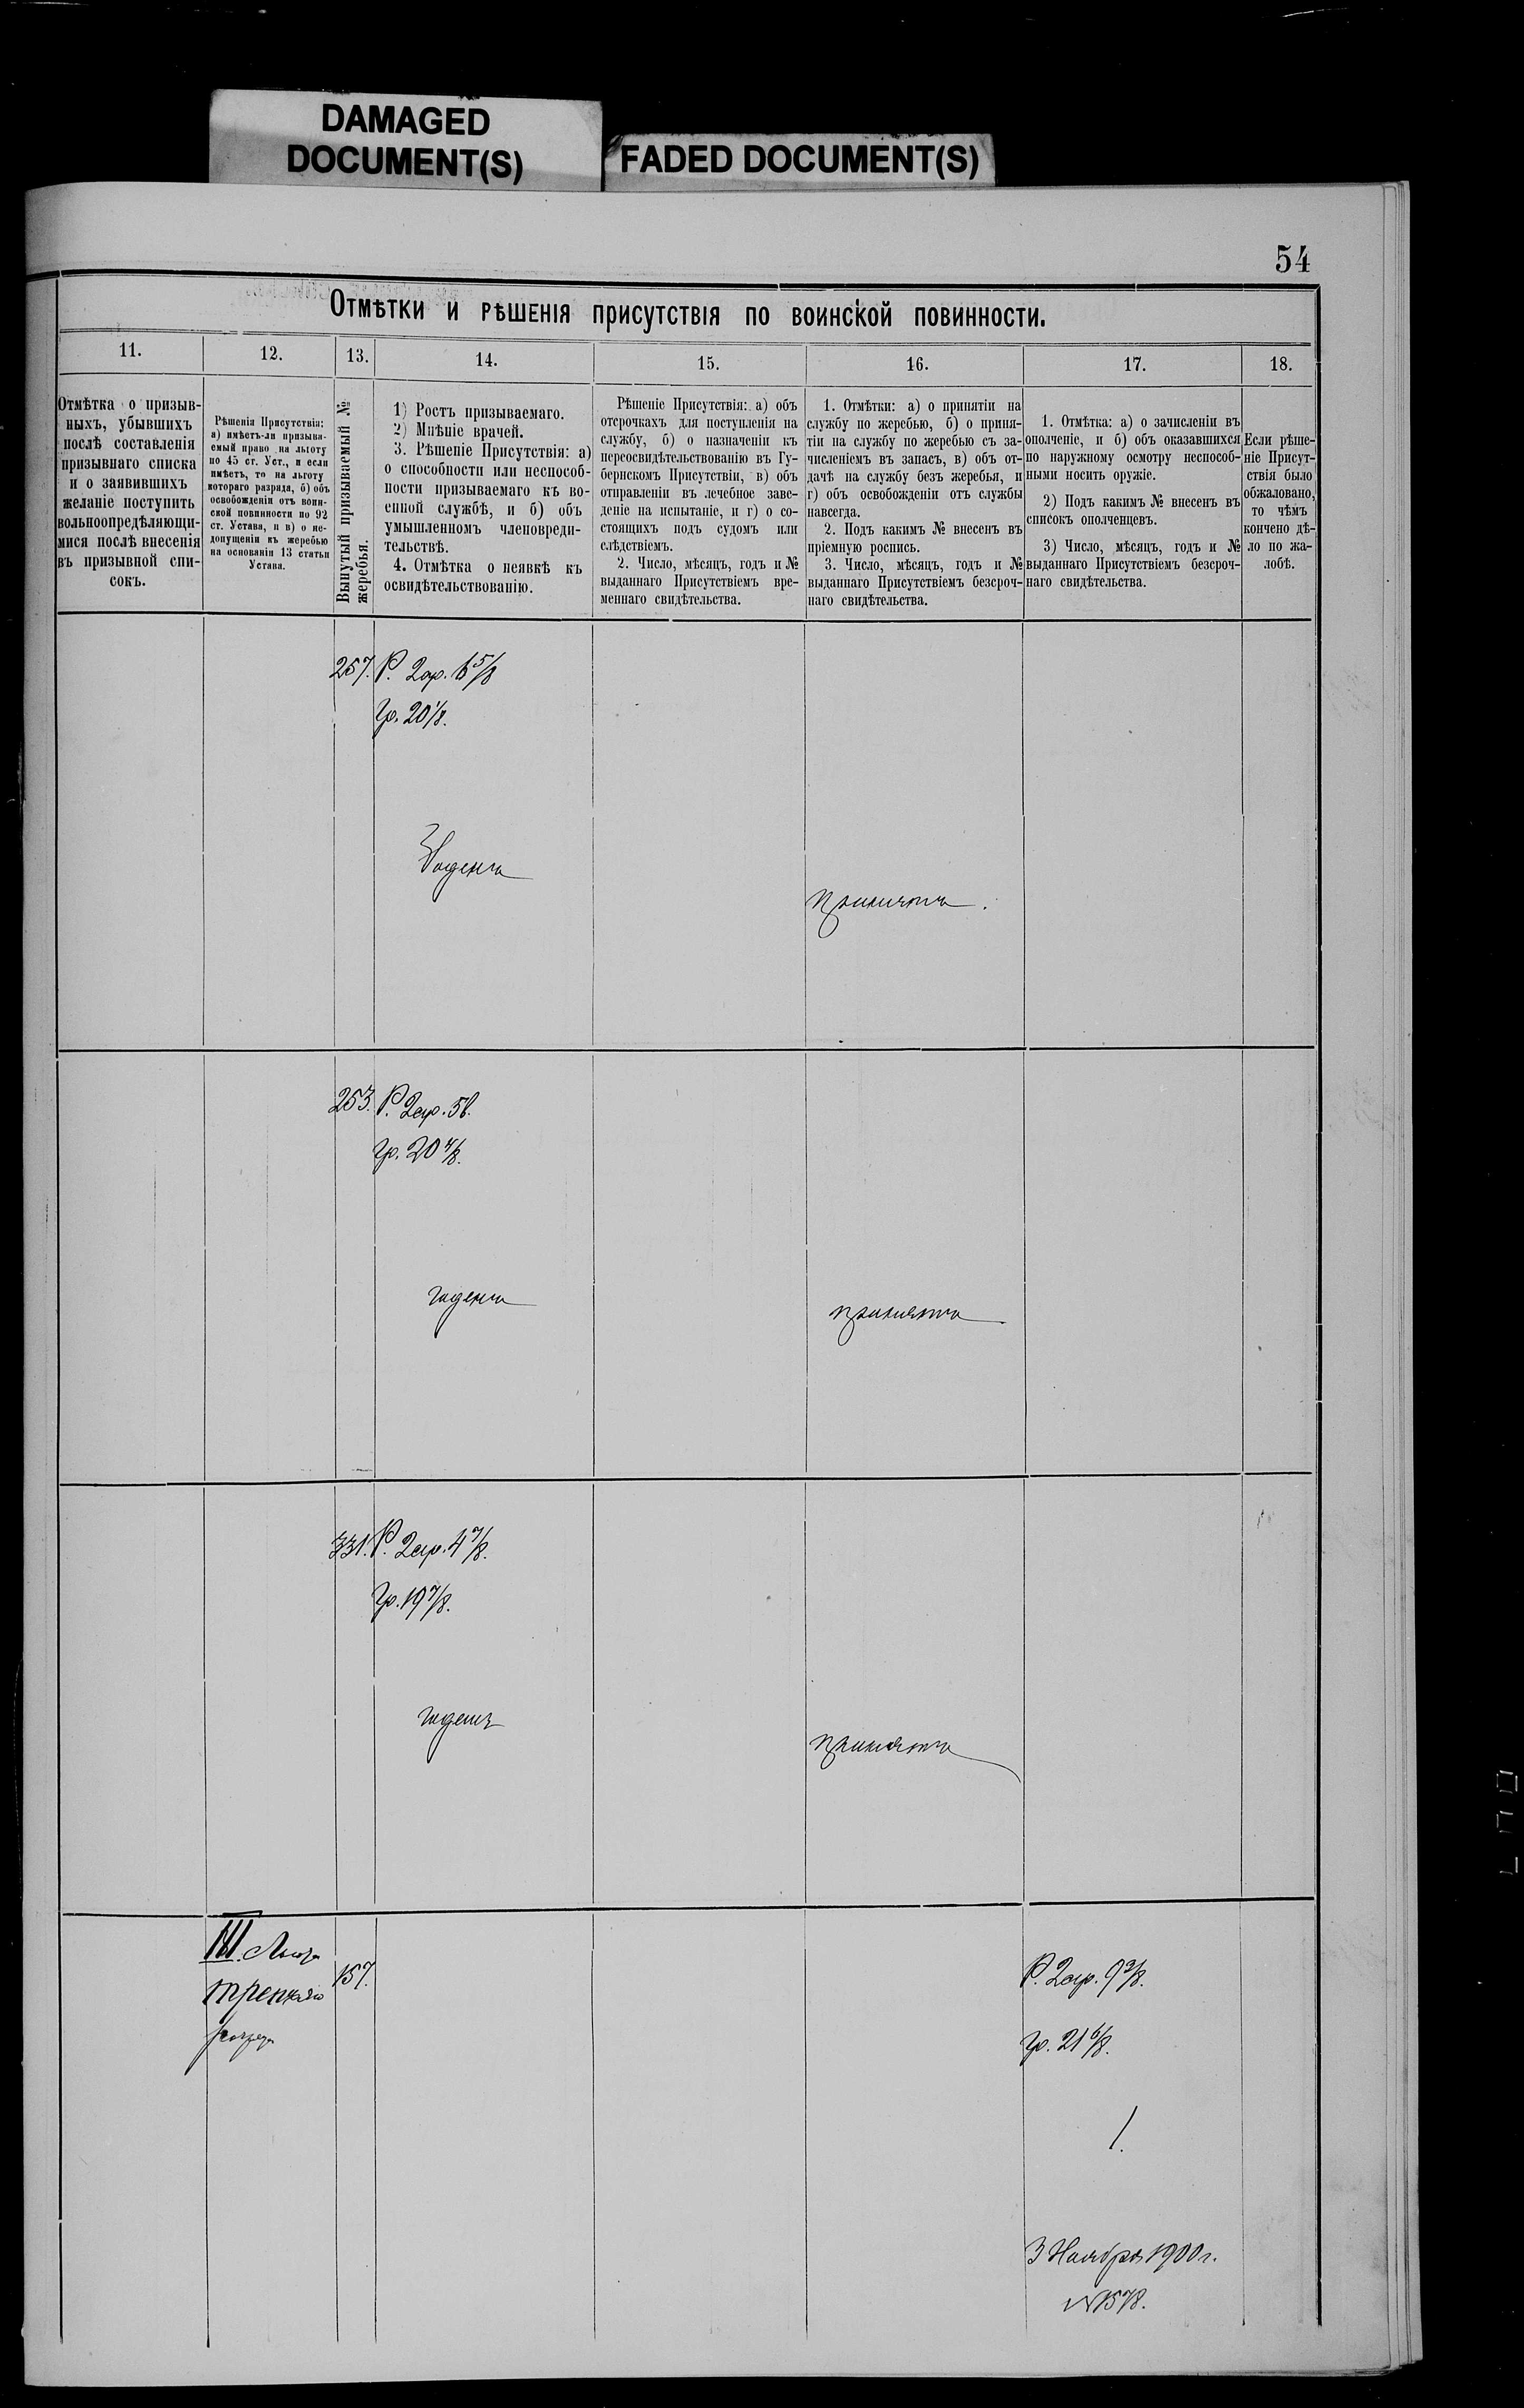 DAMAGED
DOCUMENT(S)
FADED DOCUMENT(S)
54
Отмѣтки и рѣшенія присутствія по воинской повинности.
11.
12.
13.
14.
15.
16.
17.
18.
Отмѣтка о призыв-
ныхъ, убывшихъ
послѣ составленія
призывнаго списка
и о заявившихъ
желаніе поступить
вольноопредѣляющи-
мися послѣ внесенія
въ призывной спи-
сокъ.
Рѣшенія Присутствія:
а) имѣетъ-ли призыва-
емый право на льготу
по 45 ст. Уст., и если
имѣетъ, то на льготу
котораго разряда, б) объ
освобожденіи отъ воин-
ской повинности по 92
ст. Устава, и в) о не-
допущеніи къ жеребью
на основаніи 13 статьи
Устава.
Вынутый призываемый №
жеребья.
1) Ростъ призываемаго.
2) Мнѣніе врачей.
3. Рѣшеніе Присутствія: а)
о способности или неспособ-
ности призываемаго къ во-
енной службѣ, и б) объ
умышленномъ членовреди-
тельствѣ.
4. Отмѣтка о неявкѣ къ
освидѣтельствованію.
Рѣшеніе Присутствія: а) объ
отсрочкахъ для поступленія на
службу, б) о назначеніи къ
переосвидѣтельствованію въ Гу-
бернскомъ Присутствіи, в) объ
отправленіи въ лечебное заве-
деніе на испытаніе, и г) о со-
стоящихъ подъ судомъ или
слѣдствіемъ.
2. Число, мѣсяцъ, годъ и №
выданнаго Присутствіемъ вре-
меннаго свидѣтельства.
1. Отмѣтки: а) о принятіи на
службу по жеребью, б) о приня-
тіи на службу по жеребью съ за-
численіемъ въ запасъ, в) объ от-
дачѣ на службу безъ жеребья, и
г) объ освобожденіи отъ службы
навсегда.
2. Подъ какимъ № внесенъ въ
пріемную роспись.
3. Число, мѣсяцъ, годъ и №
выданнаго Присутствіемъ безсроч-
наго свидѣтельства.
1. Отмѣтка: а) о зачисленіи въ
ополченіе, и б) объ оказавшихся
по наружному осмотру неспособ-
ными носить оружіе.
2) Подъ какимъ № внесенъ въ
списокъ ополченцевъ.
3) Число, мѣсяцъ, годъ и №
выданнаго Присутствіемъ безсроч-
наго свидѣтельства.
Если рѣше-
ніе Присут-
ствія было
обжаловано,
то чѣмъ
кончено дѣ-
ло по жа-
лобѣ.
257. Р. 2ар. 6 5/8
Гр. 20 1/8.
Годенъ
принятъ.
253. Р. 2ар. 5 в.
Гр. 20 4/8.
годенъ
принятъ
331. Р. 2ар. 4 7/8.
Гр. 19 7/8.
годенъ
принятъ
III. Льгота
157.
Р. 2ар. 9 3/8.
разряда
Гр. 21 6/8.
1.
3 Ноября 1900 г.
№ 1578.